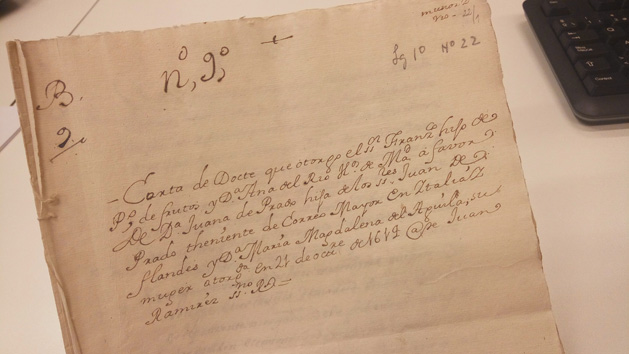 muños
no - 22
Lg 1º Nº 22
nº, 9º,
B.
9.
- Carta de Docte que otorgo el sʳ. Franzº hijo de
Pº, de frutos y Dª Ana del Rio Vº. de Mª á favor
De Dª Juana de Prado hija de los ss. Juan De
Prado theniente de Correo Mayor En Italiã
flandes y Dª Maria Magdalena del Aguila, su
muger otorgda en 21 de octre de 1642 @ Juan
Ramirez ssno. RD=